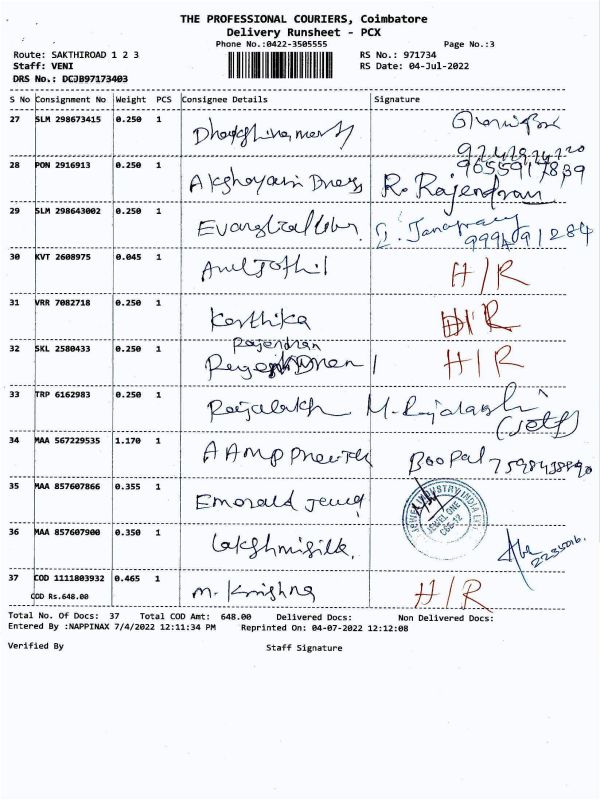 THE PROFESSIONAL COURIERS, Coimbatore
Delivery Runsheet - PCX
Phone No.:0422-3505555
Page No.:3
Route: SAKTHIROAD 1 2 3
RS No.: 971734
Staff: VENI
RS Date: 04-Jul-2022
DRS No.: DCJB97173403
S No Consignment No Weight PCS Consignee Details Signature
27 SLM 298673415 0.250 1
28 PON 2916913 0.250 1 R. Rajendran
9655917839
29 SLM 298643002 0.250 1
30 KVT 2608975 0.045 1 H/R
31 VRR 7082718 0.250 1 Karthika H/R
32 SKL 2580433 0.250 1 Rajendran H/R
33 TRP 6162983 0.250 1 (self)
34 MAA 567229535 1.170 1 Boopal
35 MAA 857607866 0.355 1 Emerald Jewel
JEWEL ONE
CBE-12
36 MAA 857607900 0.350 1 Lakshmisilk.
2235016.
37 COD 1111803932 0.465 1 M. Krishna H/R
COD Rs.648.00
Total No. Of Docs: 37 Total COD Amt: 648.00 Delivered Docs: Non Delivered Docs:
Entered By :NAPPINAX 7/4/2022 12:11:34 PM Reprinted On: 04-07-2022 12:12:08
Verified By Staff Signature